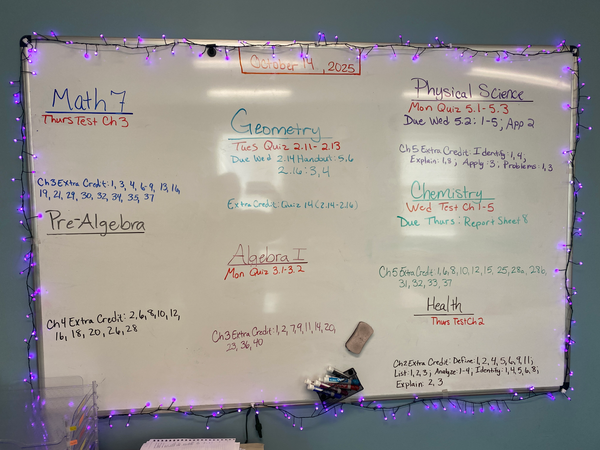 October 14, 2025
Math 7
Thurs Test Ch 3
Ch 3 Extra Credit: 1, 3, 4, 6-9, 13, 16,
19, 21, 29, 30, 32, 34, 35, 37
Pre-Algebra
Ch 4 Extra Credit: 2, 6, 8, 10, 12,
16, 18, 20, 26, 28
Geometry
Tues Quiz 2.11-2.13
Due Wed 2.14 Handout: 5, 6
2.16: 3, 4
Extra Credit: Quiz 14 (2.14-2.16)
Algebra I
Mon Quiz 3.1-3.2
Ch 3 Extra Credit: 1, 2, 7, 9, 11, 14, 20,
23, 36, 40
Physical Science
Mon Quiz 5.1-5.3
Due Wed 5.2: 1-5, App 2
Ch 5 Extra Credit: Identify: 1, 4;
Explain: 1, 8; Apply: 3; Problems: 1, 3
Chemistry
Wed Test Ch 1-5
Due Thurs: Report Sheet 8
Ch 5 Extra Credit: 1, 6, 8, 10, 12, 15, 25, 28a, 28b,
31, 32, 33, 37
Health
Thurs Test Ch 2
Ch 2 Extra Credit: Define: 1, 2, 4, 5, 6, 9, 11;
List: 1, 2, 3; Analyze: 1-4; Identify: 1, 4, 5, 6, 8;
Explain: 2, 3